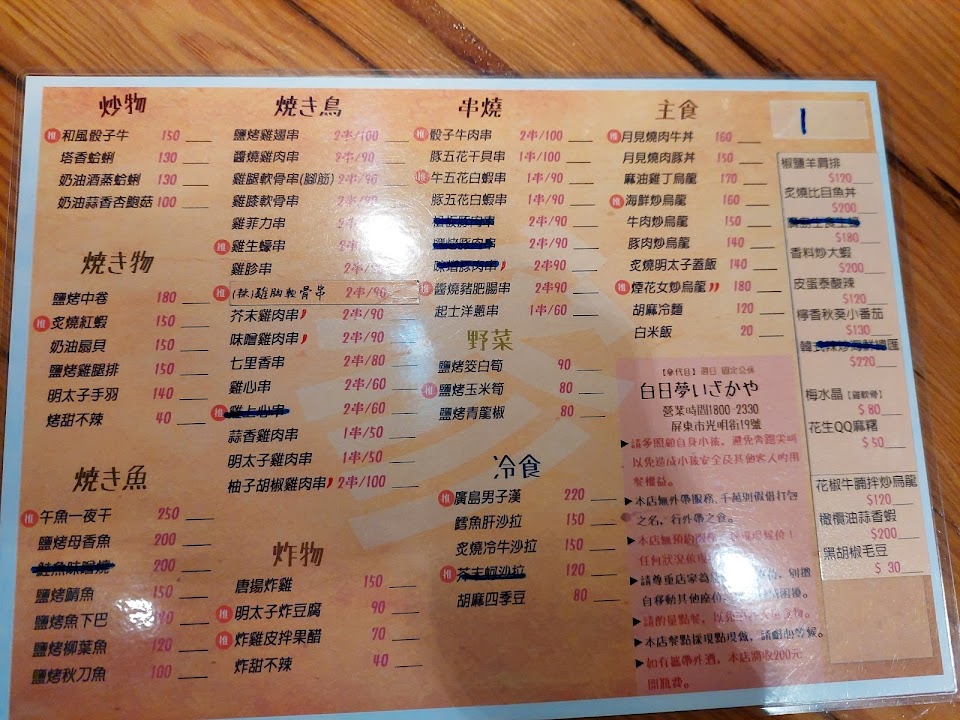 炒物
推 和風骰子牛 150
塔香蛤蜊 130
奶油酒蒸蛤蜊 130
奶油蒜香杏鮑菇 100
焼き物
鹽烤中卷 180
推 炙燒紅蝦 150
奶油扇貝 150
鹽烤雞腿排 150
明太子手羽 140
烤甜不辣 40
焼き魚
推 午魚一夜干 250
鹽烤母香魚 200
鮭魚味噌燒 200
鹽烤鯖魚 150
鹽烤魚下巴
鹽烤柳葉魚 120
鹽烤秋刀魚 100
焼き鳥
鹽烤雞翅串 2串/100
醬燒雞肉串 2串/90
雞腿軟骨串(腳筋) 2串/90
雞膝軟骨串 2串/90
雞菲力串
推 雞生蠔串
雞胗串
推 (辣)雞胸軟骨串 2串/90
芥末雞肉串 2串/90
味噌雞肉串 2串/90
七里香串 2串/80
雞心串 2串/60
推 雞上心串 2串/60
蒜香雞肉串 1串/50
明太子雞肉串 1串/50
柚子胡椒雞肉串 2串/100
炸物
唐揚炸雞 150
推 明太子炸豆腐 90
推 炸雞皮拌果醋 70
炸甜不辣 40
串燒
推 骰子牛肉串 2串/100
豚五花干貝串 1串/100
推 牛五花白蝦串 2串/90
豚五花白蝦串 2串/90
2串/90
2串/90
味噌豚肉串 2串/90
推 醬燒豬肥腸串 2串90
起士洋蔥串 1串/60
野菜
鹽烤筊白筍 90
推 鹽烤玉米筍 80
鹽烤青龍椒 80
冷食
推 廣島男子漢 220
鱈魚肝沙拉 150
炙燒冷牛沙拉 150
推 芥末蚵沙拉 120
胡麻四季豆 80
主食
推 月見燒肉牛丼 160
月見燒肉豚丼 150
麻油雞丁烏龍 170
推 海鮮炒烏龍 160
牛肉炒烏龍 150
豚肉炒烏龍 140
炙燒明太子蓋飯 140
推 煙花女炒烏龍 120
胡麻冷麵 120
白米飯 20
【參代目】週日 固定公休
白日夢いざかや
營業時間1800-2330
屏東市光明街19號
▶請多照顧自身小孩，避免奔跑尖叫
以免造成小孩安全及其他客人的用
餐權益。
▶本店無外帶服務，千萬別假借打包
之名，行外帶之食。
▶本店無預約
任何狀況
▶請尊重店家為
自移動其他座位
▶請酌量點餐，以免
▶本店餐點採現點現做，請耐心等候。
▶如有攜帶外酒，本店將收200元
開瓶費。
1
椒鹽羊肩排
$120
炙燒比目魚丼
$200
$180
香料炒大蝦
$200
皮蛋泰酸辣
$120
檸香秋葵小番茄
$130
$220
梅水晶【雞軟骨】
$ 80
花生QQ麻糬
$ 50
花椒牛腩拌炒烏龍
$120
橄欖油蒜香蝦
$200
黑胡椒毛豆
$ 30